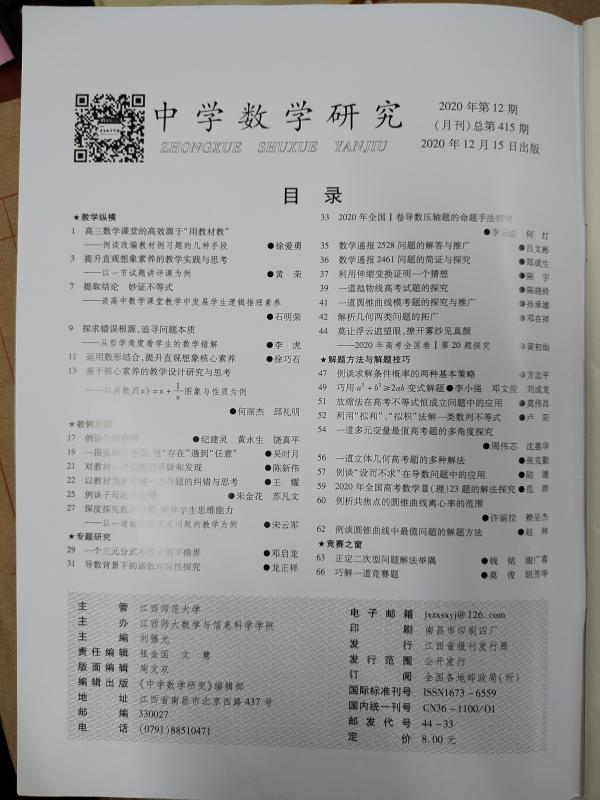 中学数学研究
ZHONGXUE SHUXUE YANJIU
2020年第12期
(月刊)总第415期
2020年12月15日出版
目 录
★教学纵横
1 高三数学课堂的高效源于“用教材教”
——例谈改编教材例习题的几种手段 ●徐爱勇
3 提升直观想象素养的教学实践与思考
——以一节试题讲评课为例 ●黄 荣
7 提取结论 妙证不等式
——谈高中数学课堂教学中发展学生逻辑推理素养
●石明荣
9 探求错误根源,追寻问题本质
——从哲学角度看学生的数学错解 ●李 虎
11 运用数形结合,提升直观想象核心素养 ●徐巧石
13 基于核心素养的教学设计研究与思考
——以函数f(x)=x+1/x图象与性质为例
●何丽杰 邱礼明
★教例
17 例谈 ●纪建灵 黄永生 饶真平
19 一段 当“存在”遇到“任意” ●吴时月
21 对教材 疑和发现 ●陈新伟
22 以教材为 习题的纠错与思考 ●王 耀
25 例谈子母 ●朱金花 苏凡文
27 深度探究 养学生思维能力
——以一道 问题的教学为例 ●宋云军
★专题研究
29 一个三元分式不 的下确界 ●邓启龙
31 导数背景下的函数对称性探究 ●龙正祥
33 2020年全国Ⅰ卷导数压轴题的命题手法探究
●李云 何 灯
35 数学通报2528问题的解答与推广 ●吕文彬
36 数学通报2461问题的简证与探究 ●郑成生
37 利用伸缩变换证明一个猜想 ●陈 宇
39 一道抛物线高考试题的探究 ●陈晓铃
41 一道圆锥曲线模考题的探究与推广 ●孙承雄
42 解析几何两类问题的拓广 ●邓在祥
44 莫让浮云遮望眼,撩开雾纱见真颜
——2020年高考全国卷Ⅰ第20题探究 ●黄初灿
★解题方法与解题技巧
47 例谈求解条件概率的两种基本策略 ●方志平
49 巧用a²+b²≥2ab变式解题 ●李小强 邓文俊 刘成龙
51 放缩法在高考不等式恒成立问题中的应用 ●莫伟昌
52 利用“拟和”、“拟积”法解一类数列不等式 ●卢 阳
54 一道多元变量最值高考题的多角度探究
●周伟芯 沈嘉华
56 一道立体几何高考题的多种解法 ●张克勤
57 例谈“设而不求”在导数问题中的应用 ●陆 德
59 2020年全国高考数学Ⅲ(理)23题的解法探究 ●范 群
60 例析共焦点的圆锥曲线离心率的范围
●许丽拉 赖呈杰
62 例谈圆锥曲线中最值问题的解题方法 ●赵 林
★竞赛之窗
63 正定二次型问题解法举隅 ●钱 铭 谢广喜
66 巧解一道竞赛题 ●莫 俊 胡芳举
主 管 江西师范大学
主 办 江西师大数学与信息科学学院
主 编 刘锡光
责任编辑 张金国 文 慧
版面编辑 陶文双
编辑出版 《中学数学研究》编辑部
地 址 江西省南昌市北京西路437号
邮 编 330027
电 话 (0791)88510471
电子邮箱 jxzxsxyj@126.com
印 刷 南昌市印刷四厂
发 行 江西省报刊发行局
发行范围 公开发行
订 阅 全国各地邮政局(所)
国际标准刊号 ISSN1673-6559
国内统一刊号 CN36-1100/O1
邮发代号 44-33
定 价 8.00元